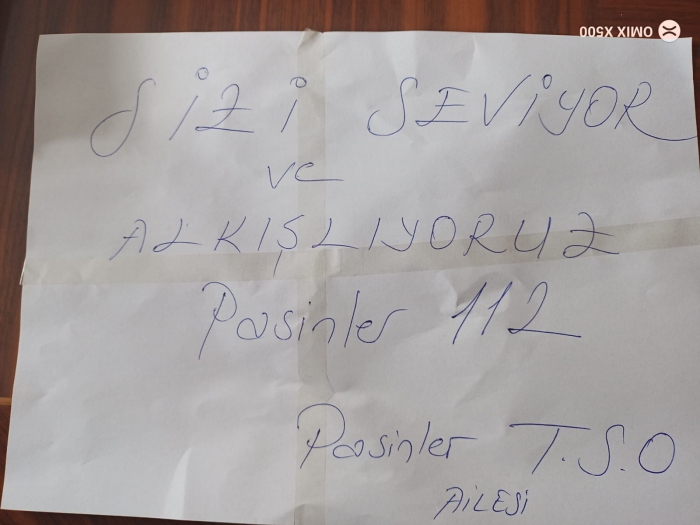 OMIX X500
SİZİ SEVİYOR
ve
ALKIŞLIYORUZ
Pasinler 112
Pasinler T.S.O
AİLESİ